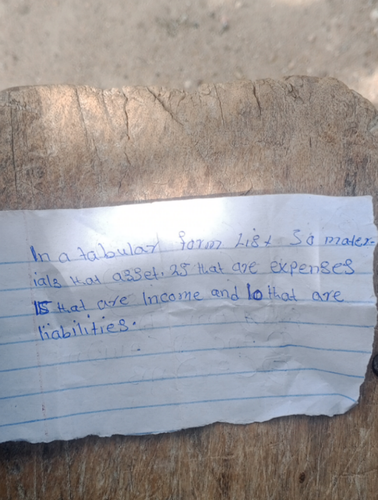 In a tabular form List 30 mater-
ials that asset. 25 that are expenses
15 that are Income and 10 that are
liabilities.